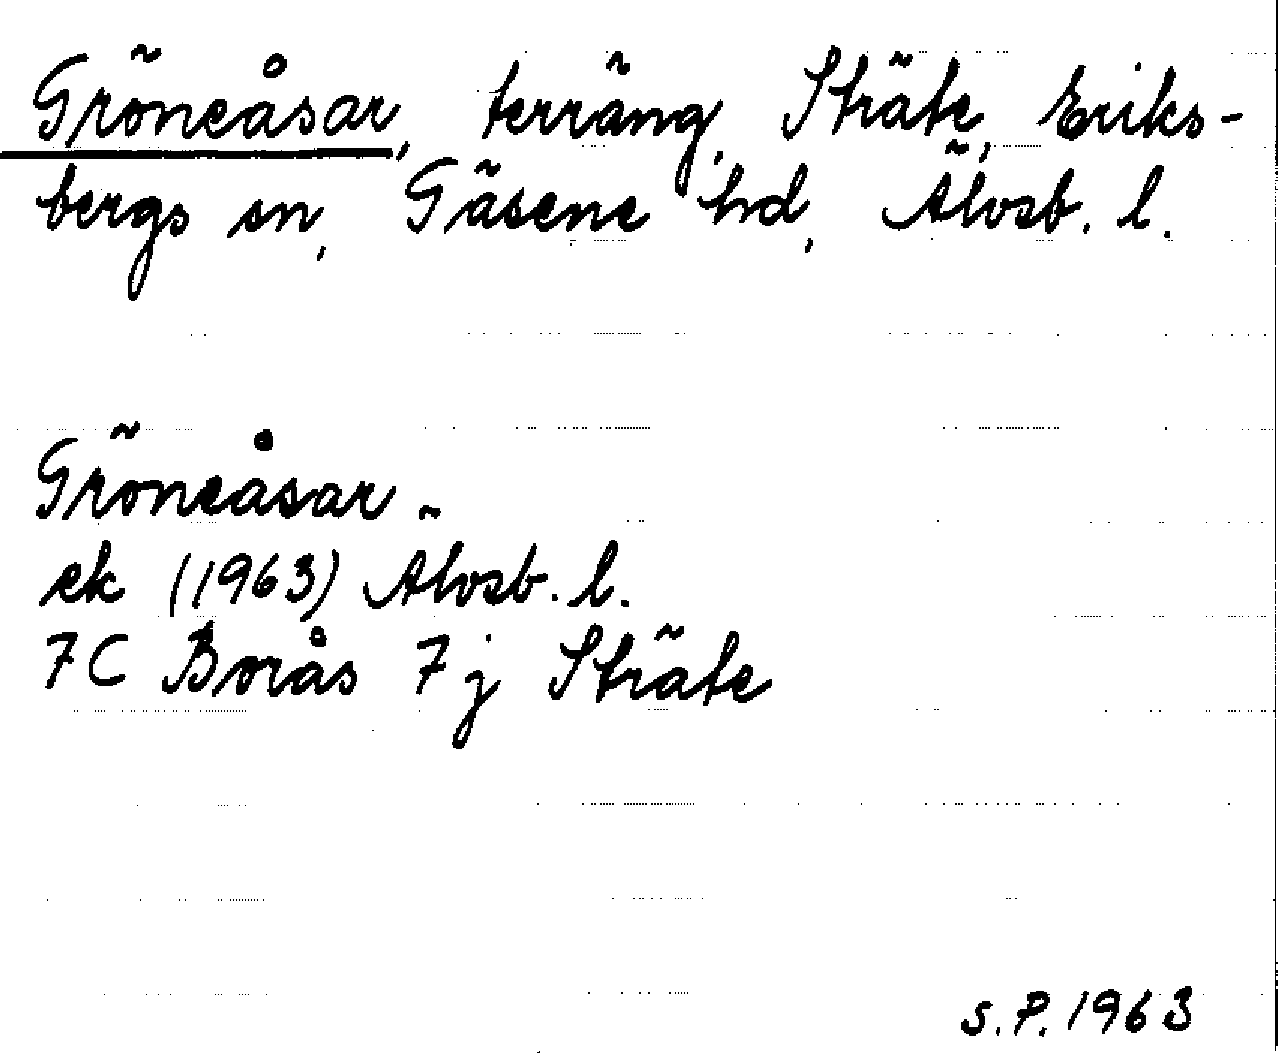 Gröneåsar, terräng, Sträte, Eriks-
bergs sn, Gäsene hd, Älvsb. l.
Gröneåsar
ek (1963) Älvsb. l.
7C Borås 7j Sträte
S.P. 1963